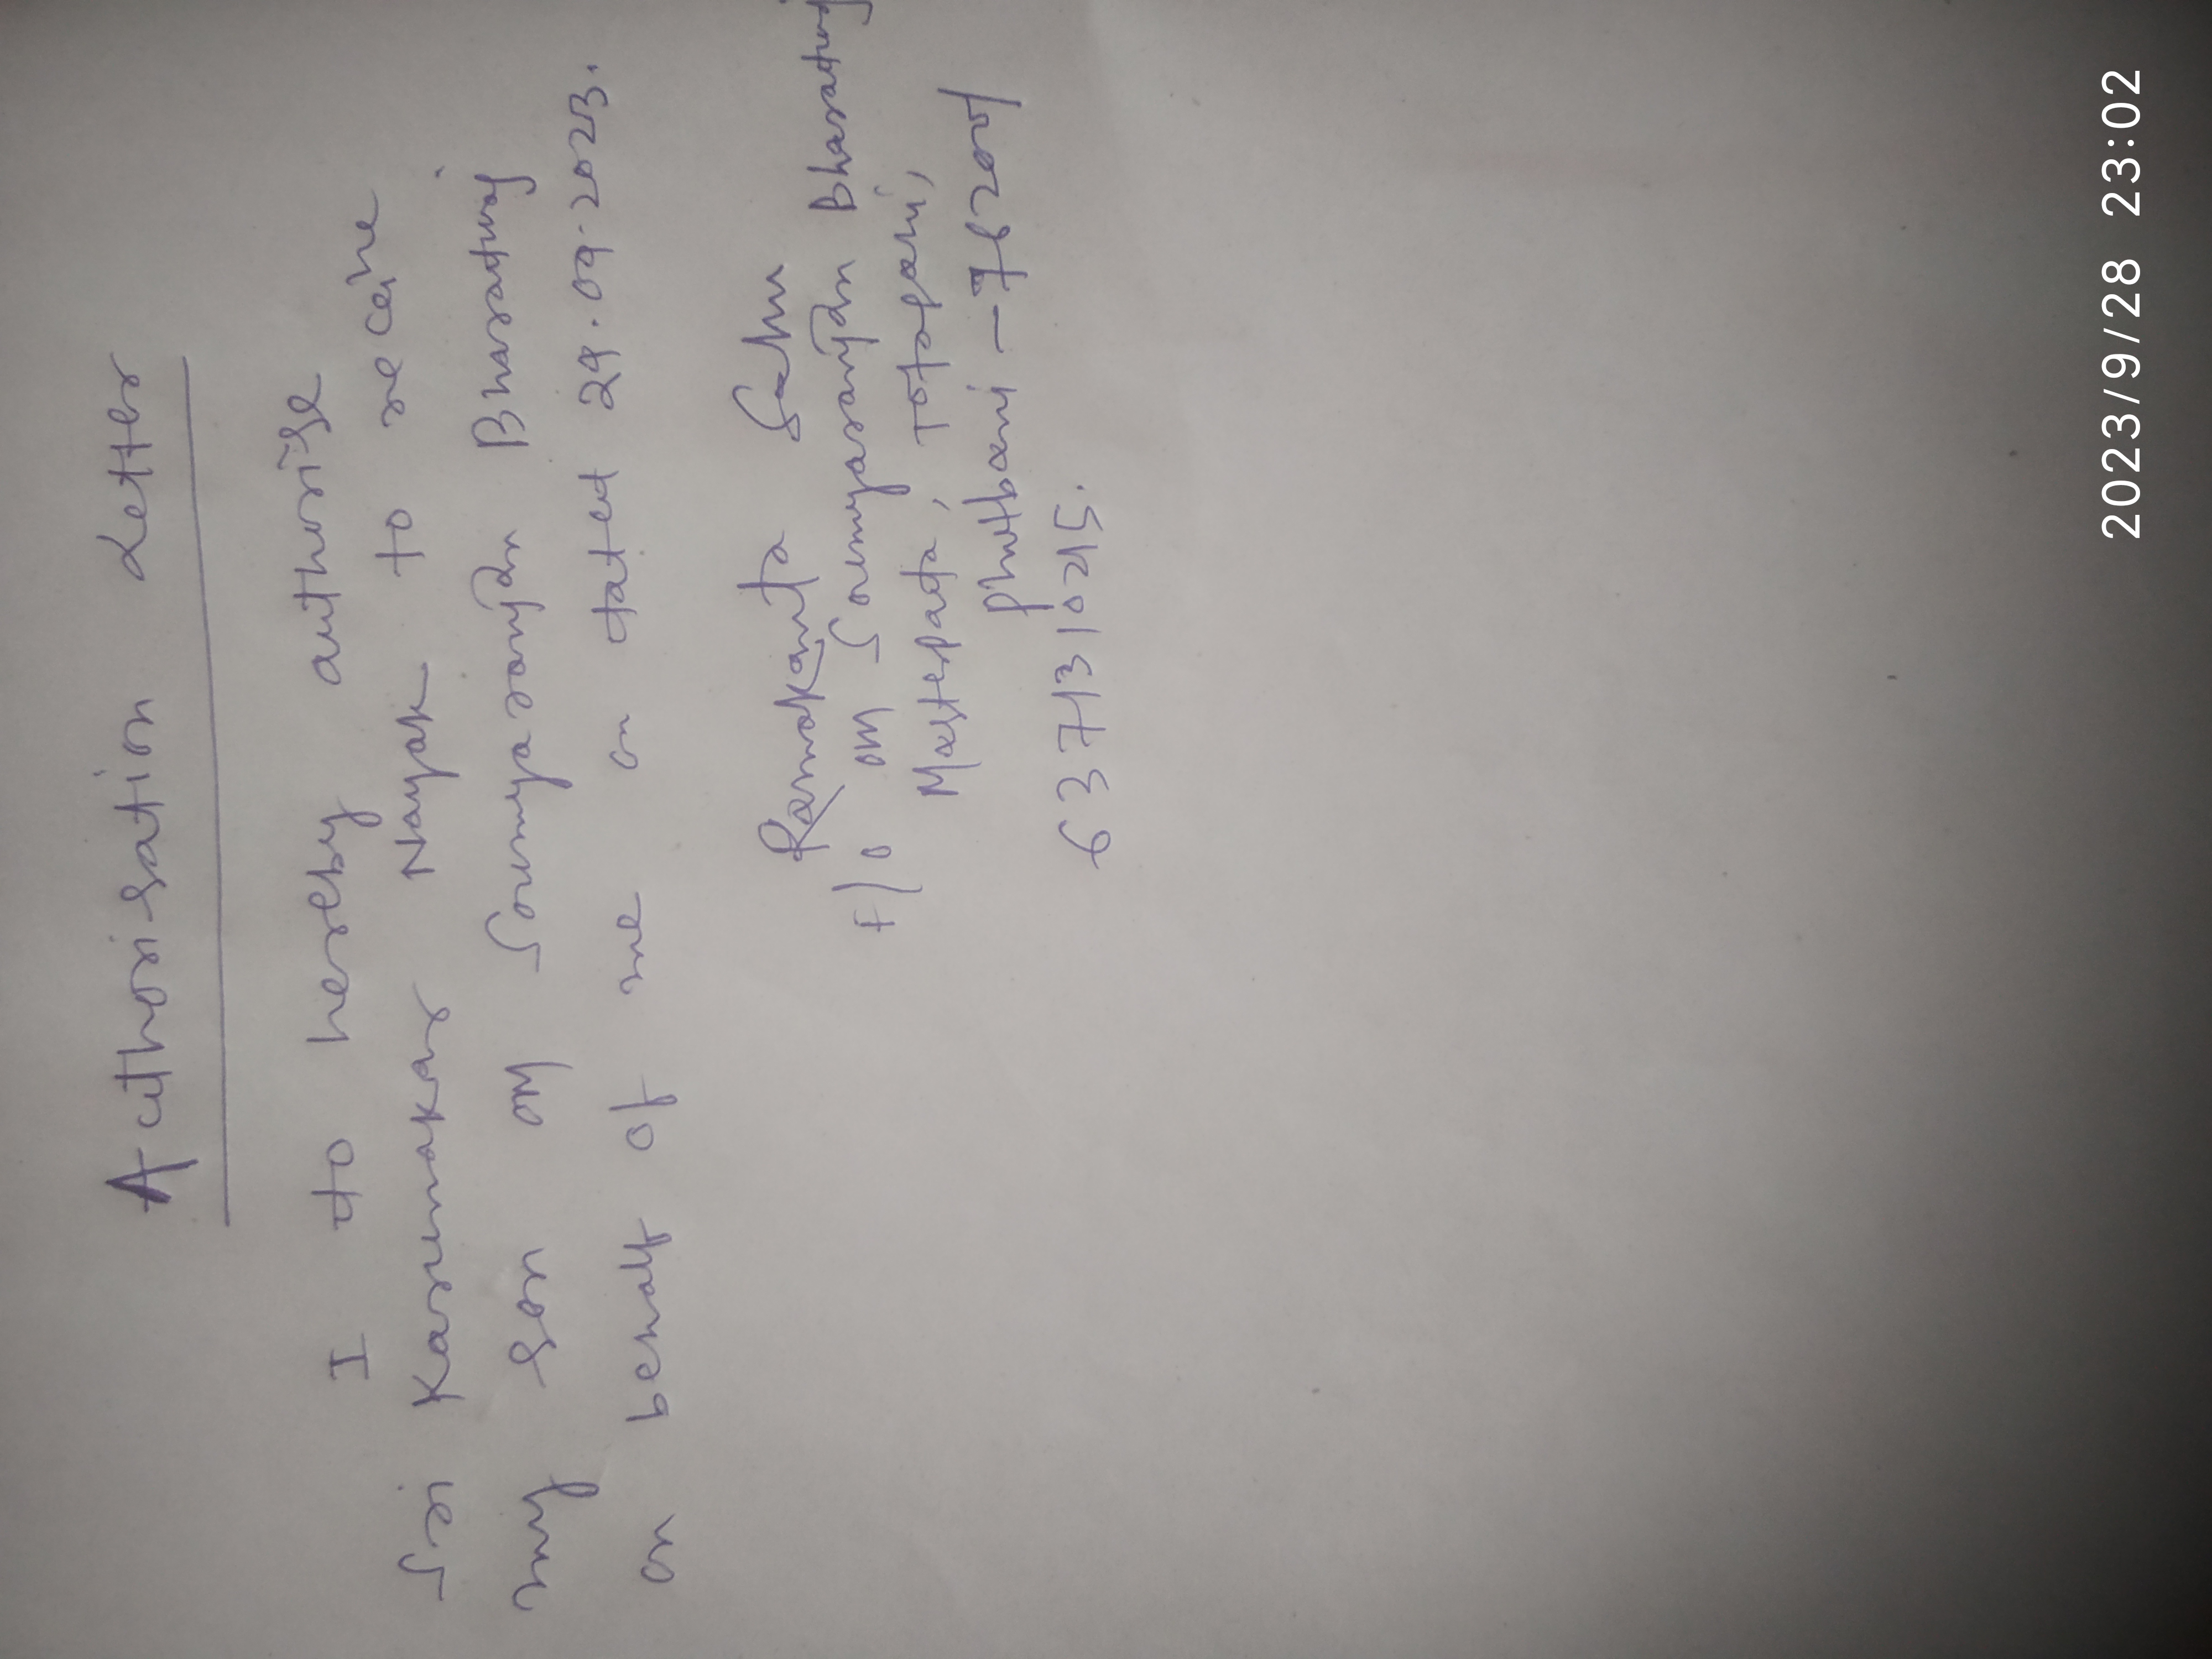 Authorisation Letter
I do hereby authorise
Sri Karunakar Nayak to receive
my son Om Soumyaranjan Bharadwaj
on behalf of me on dated 29.09.2023.
Ramakanta Sahu
F/o Om Soumyaranjan Bharadwaj
Masterpada,
Phulbani - 762001
6371310215.
2023/9/28 23:02